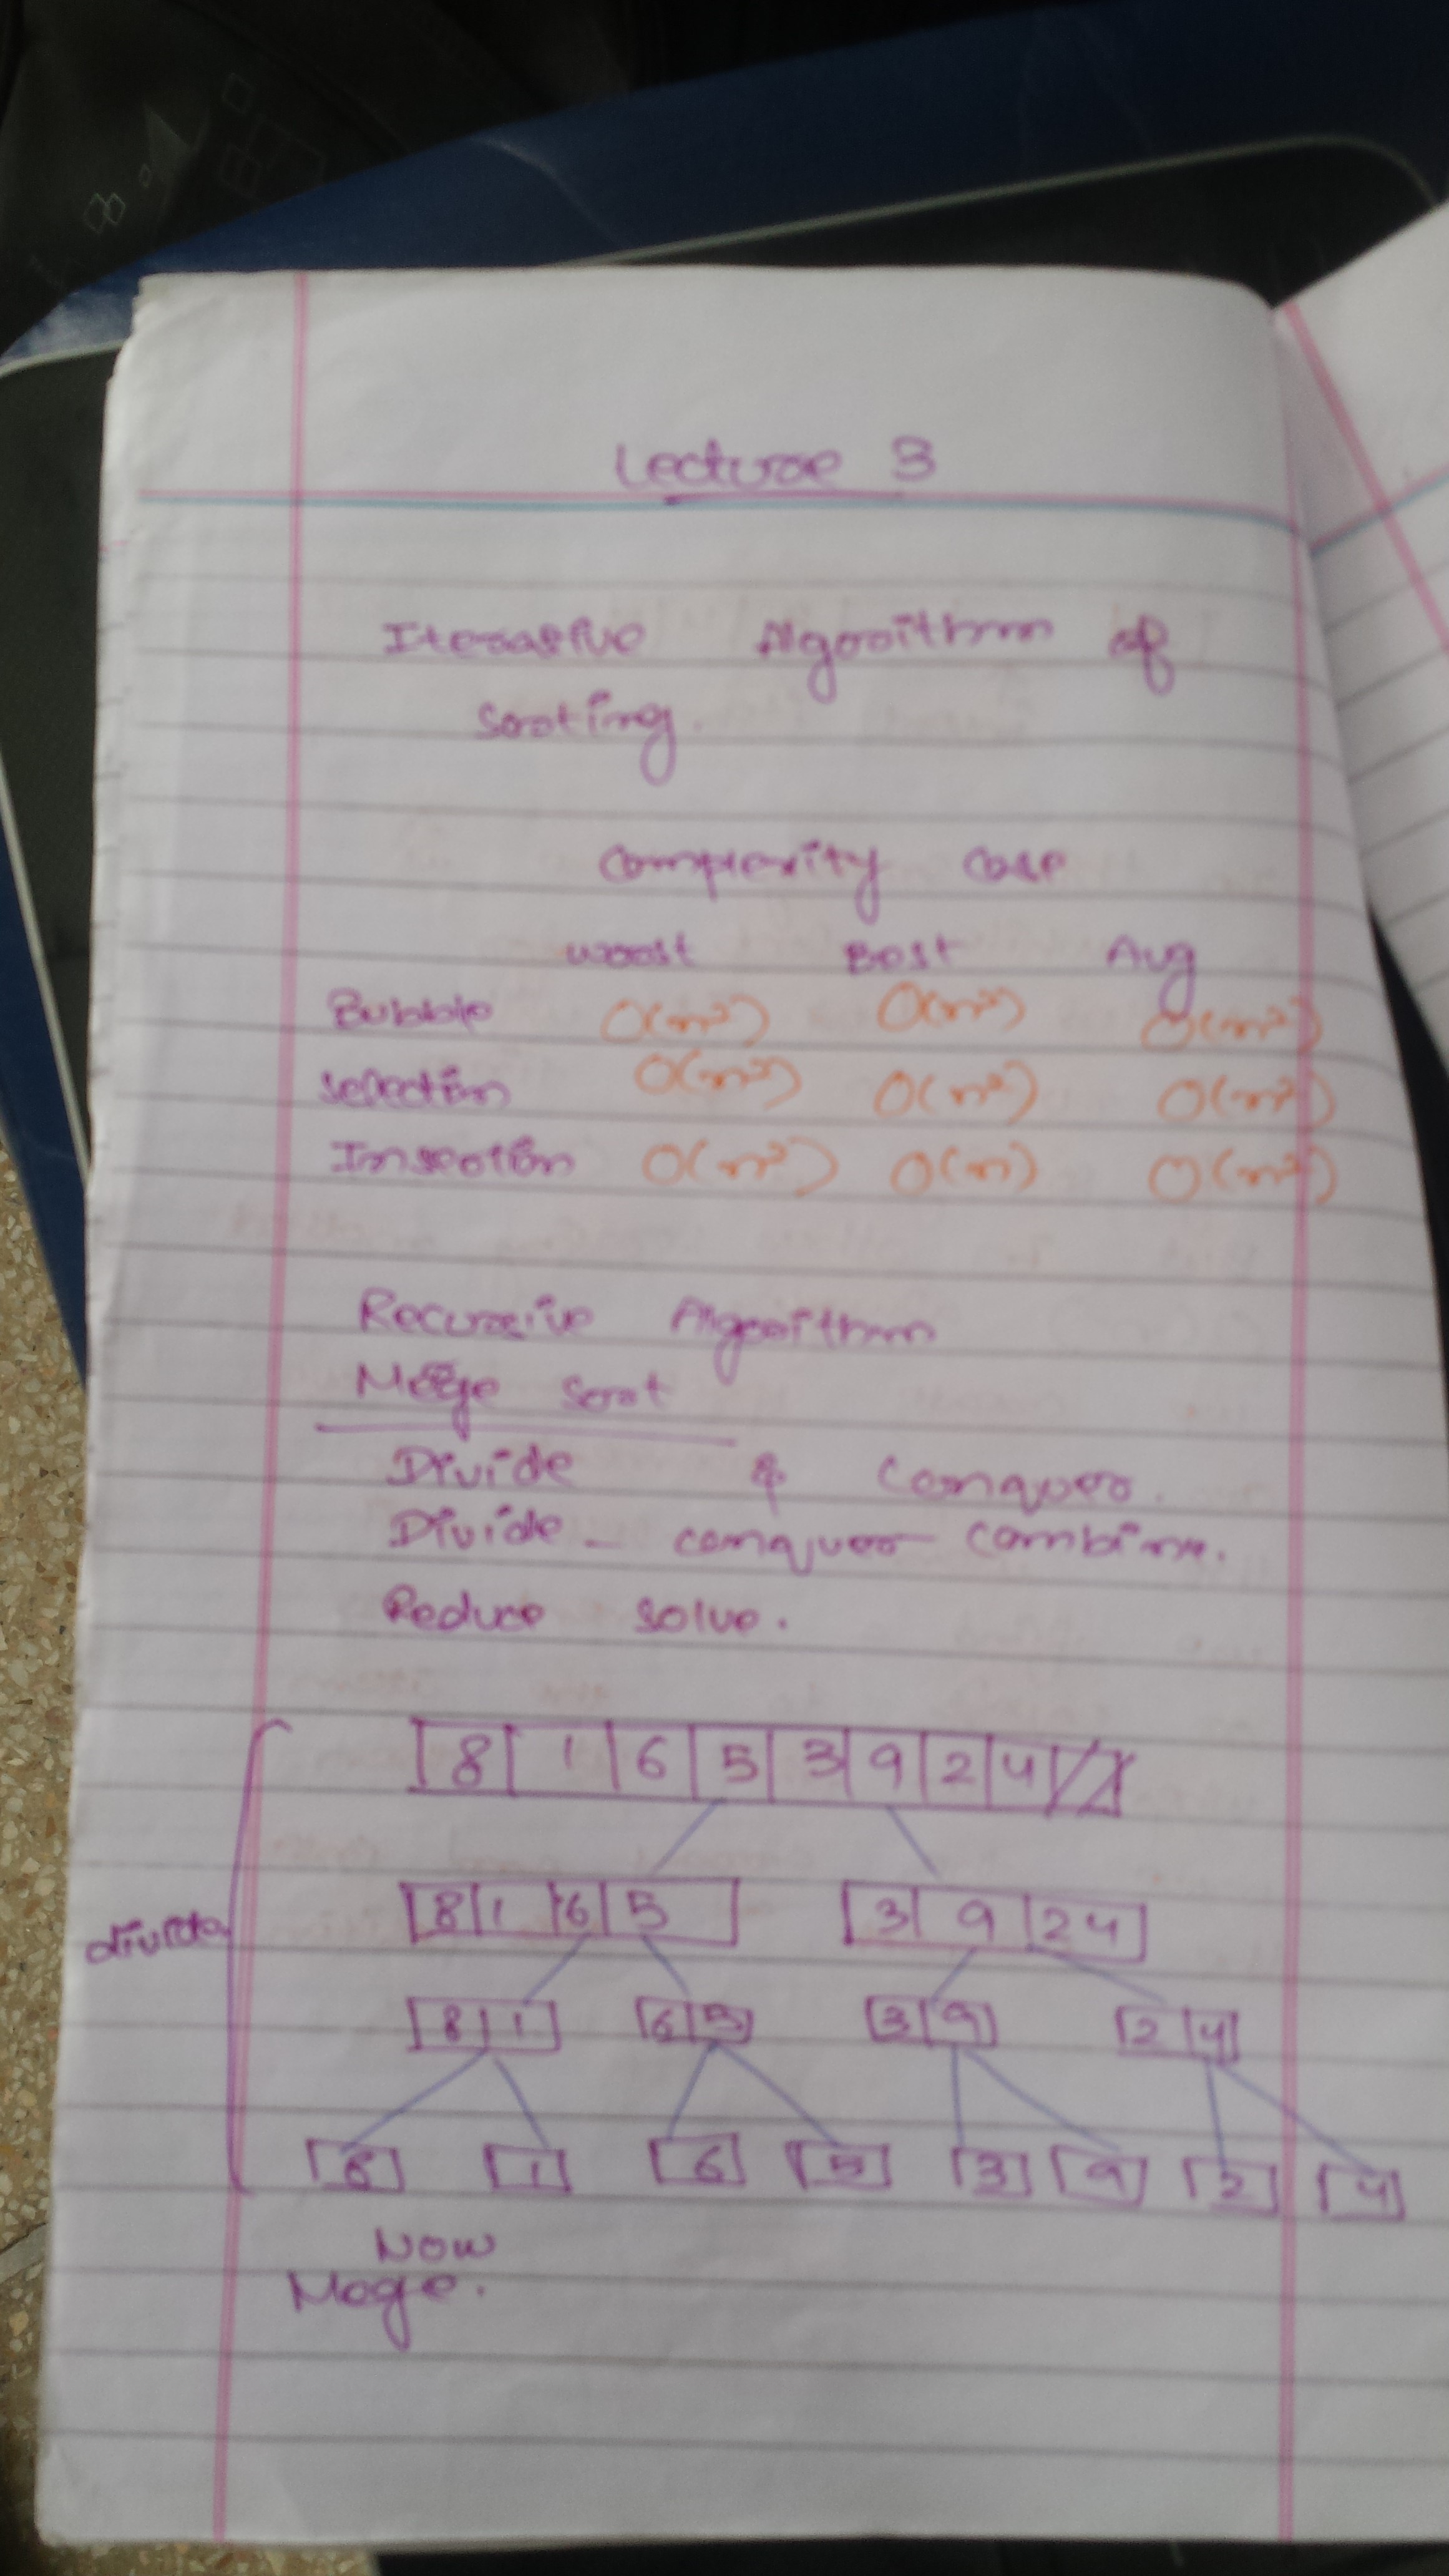 Lecture 3
Iterative Algorithm of
sorting.
Complexity Case
worst Best Avg
Bubble O(n²) O(n²) O(n²)
selection O(n²) O(n²) O(n²)
Insertion O(n²) O(n) O(n²)
Recursive Algorithm
Merge sort
Divide & Conquer.
Divide - conquer - combine.
Reduce solve.
8 1 6 5 3 9 2 4
divide
8 1 6 5 3 9 2 4
8 1 6 5 3 9 2 4
8 1 6 5 3 9 2 4
Now
Merge.